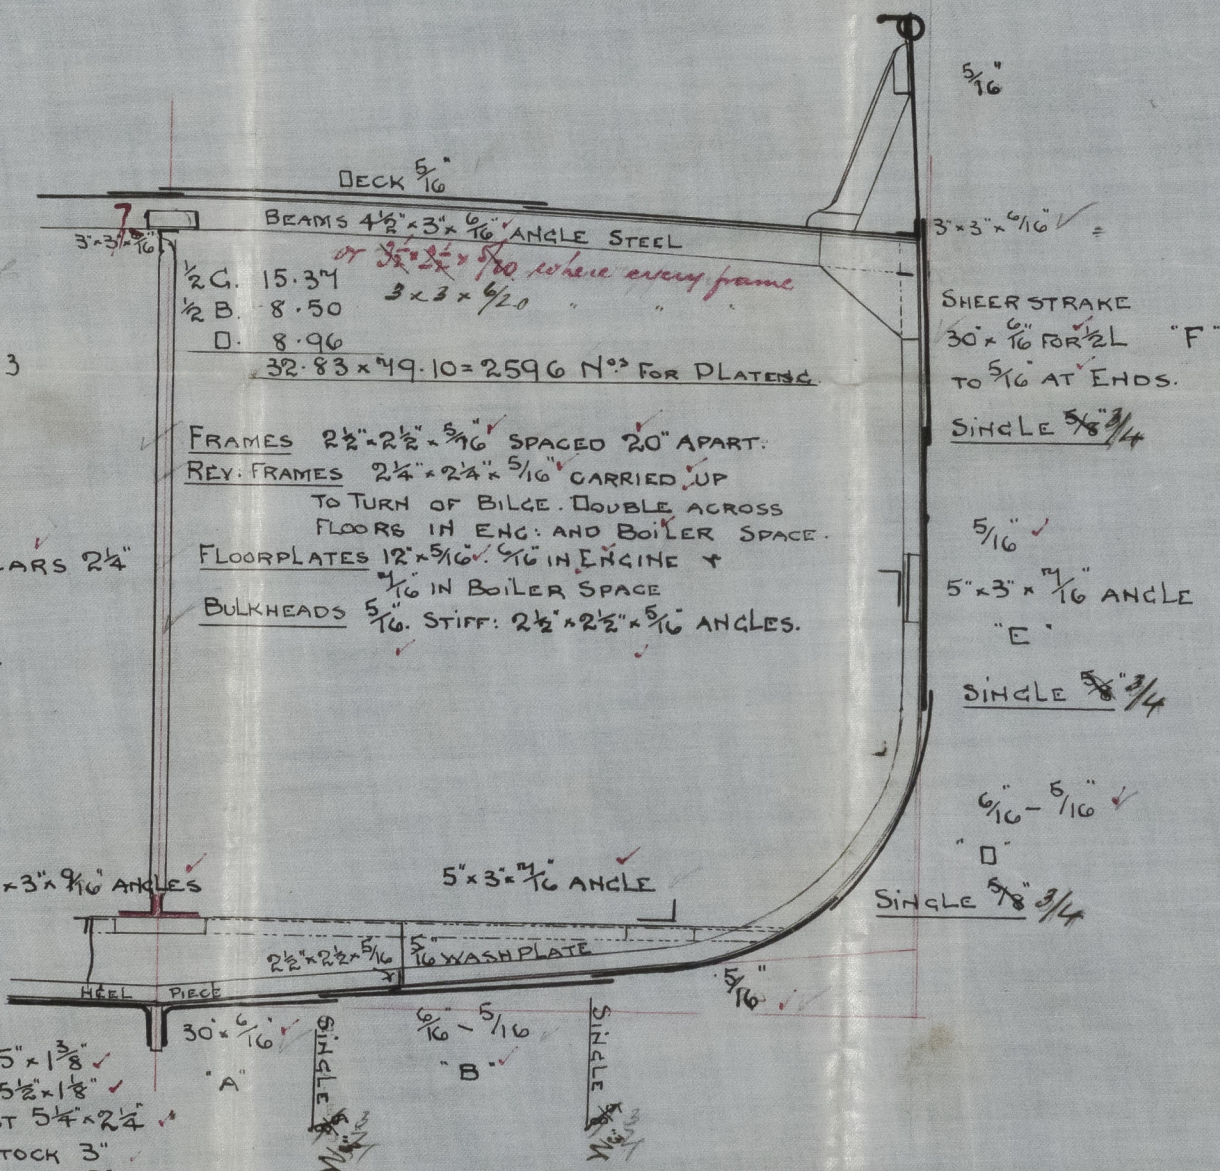 5/16"
DECK 5/16"
BEAMS 4½" × 3" × 6/16" ANGLE STEEL
7
3" × 3" ×
or 3½ × 2½ × 5/20 where every frame
3 × 3 × 6/20 " " "
½ G. 15.37
½ B. 8.50
D. 8.96
32.83 × 79.10 = 2596 Nos FOR PLATENG.
3" × 3" × 6/16"
SHEER STRAKE
30" × 6/16" FOR ½ L "F"
TO 5/16" AT ENDS.
SINGLE 5/8" 3/4
3
FRAMES 2½" × 2½" × 5/16" SPACED 20" APART.
REV: FRAMES 2¼" × 2¼" × 5/16" CARRIED UP
TO TURN OF BILGE. DOUBLE ACROSS
FLOORS IN ENG: AND BOILER SPACE.
FLOORPLATES 12" × 5/16". 6/16" IN ENGINE &
7/16" IN BOILER SPACE
BULKHEADS 5/16". STIFF: 2½" × 2½" × 5/16" ANGLES.
ARS 2¼"
5/16"
5" × 3" × 7/16" ANGLE
"E"
SINGLE 5/8" 3/4
6/16" - 5/16"
"D"
SINGLE 5/8" 3/4
× 3" × 9/16" ANGLES
5" × 3" × 7/16" ANGLE
2½" × 2½" × 5/16
5/16" WASHPLATE
HEEL PIECE
5/16"
30" × 6/16"
"A"
SINGLE 5/8"
6/16" - 5/16
"B"
SINGLE 5/8"
5" × 1⅜"
5½" × 1⅛"
T 5¼" × 2¼"
TOCK 3"